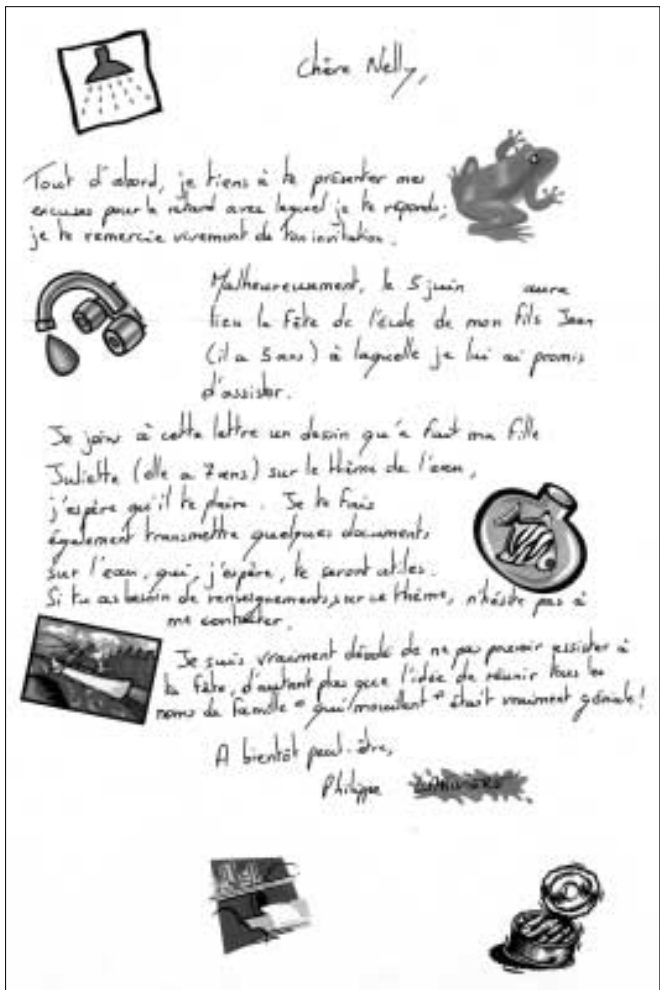 Chère Nelly,
Tout d'abord, je tiens à te présenter mes
excuses pour le retard avec lequel je te réponds;
je te remercie vivement de ton invitation.
Malheureusement, le 5 juin aura
lieu la Fête de l'école de mon fils Jean
(il a 5 ans) à laquelle je lui ai promis
d'assister.
Je joins à cette lettre un dessin qu'a fait ma fille
Juliette (elle a 7 ans) sur le thème de l'eau,
j'espère qu'il te plaira. Je te fais
également transmettre quelques documents
sur l'eau, qui, j'espère, te seront utiles.
Si tu as besoin de renseignements, sur ce thème, n'hésite pas à
me contacter.
Je suis vraiment désolé de ne pas pouvoir assister à
ta fête, d'autant plus que l'idée de réunir tous les
noms de famille "qui mouillent" était vraiment géniale!
A bientôt peut-être,
Philippe